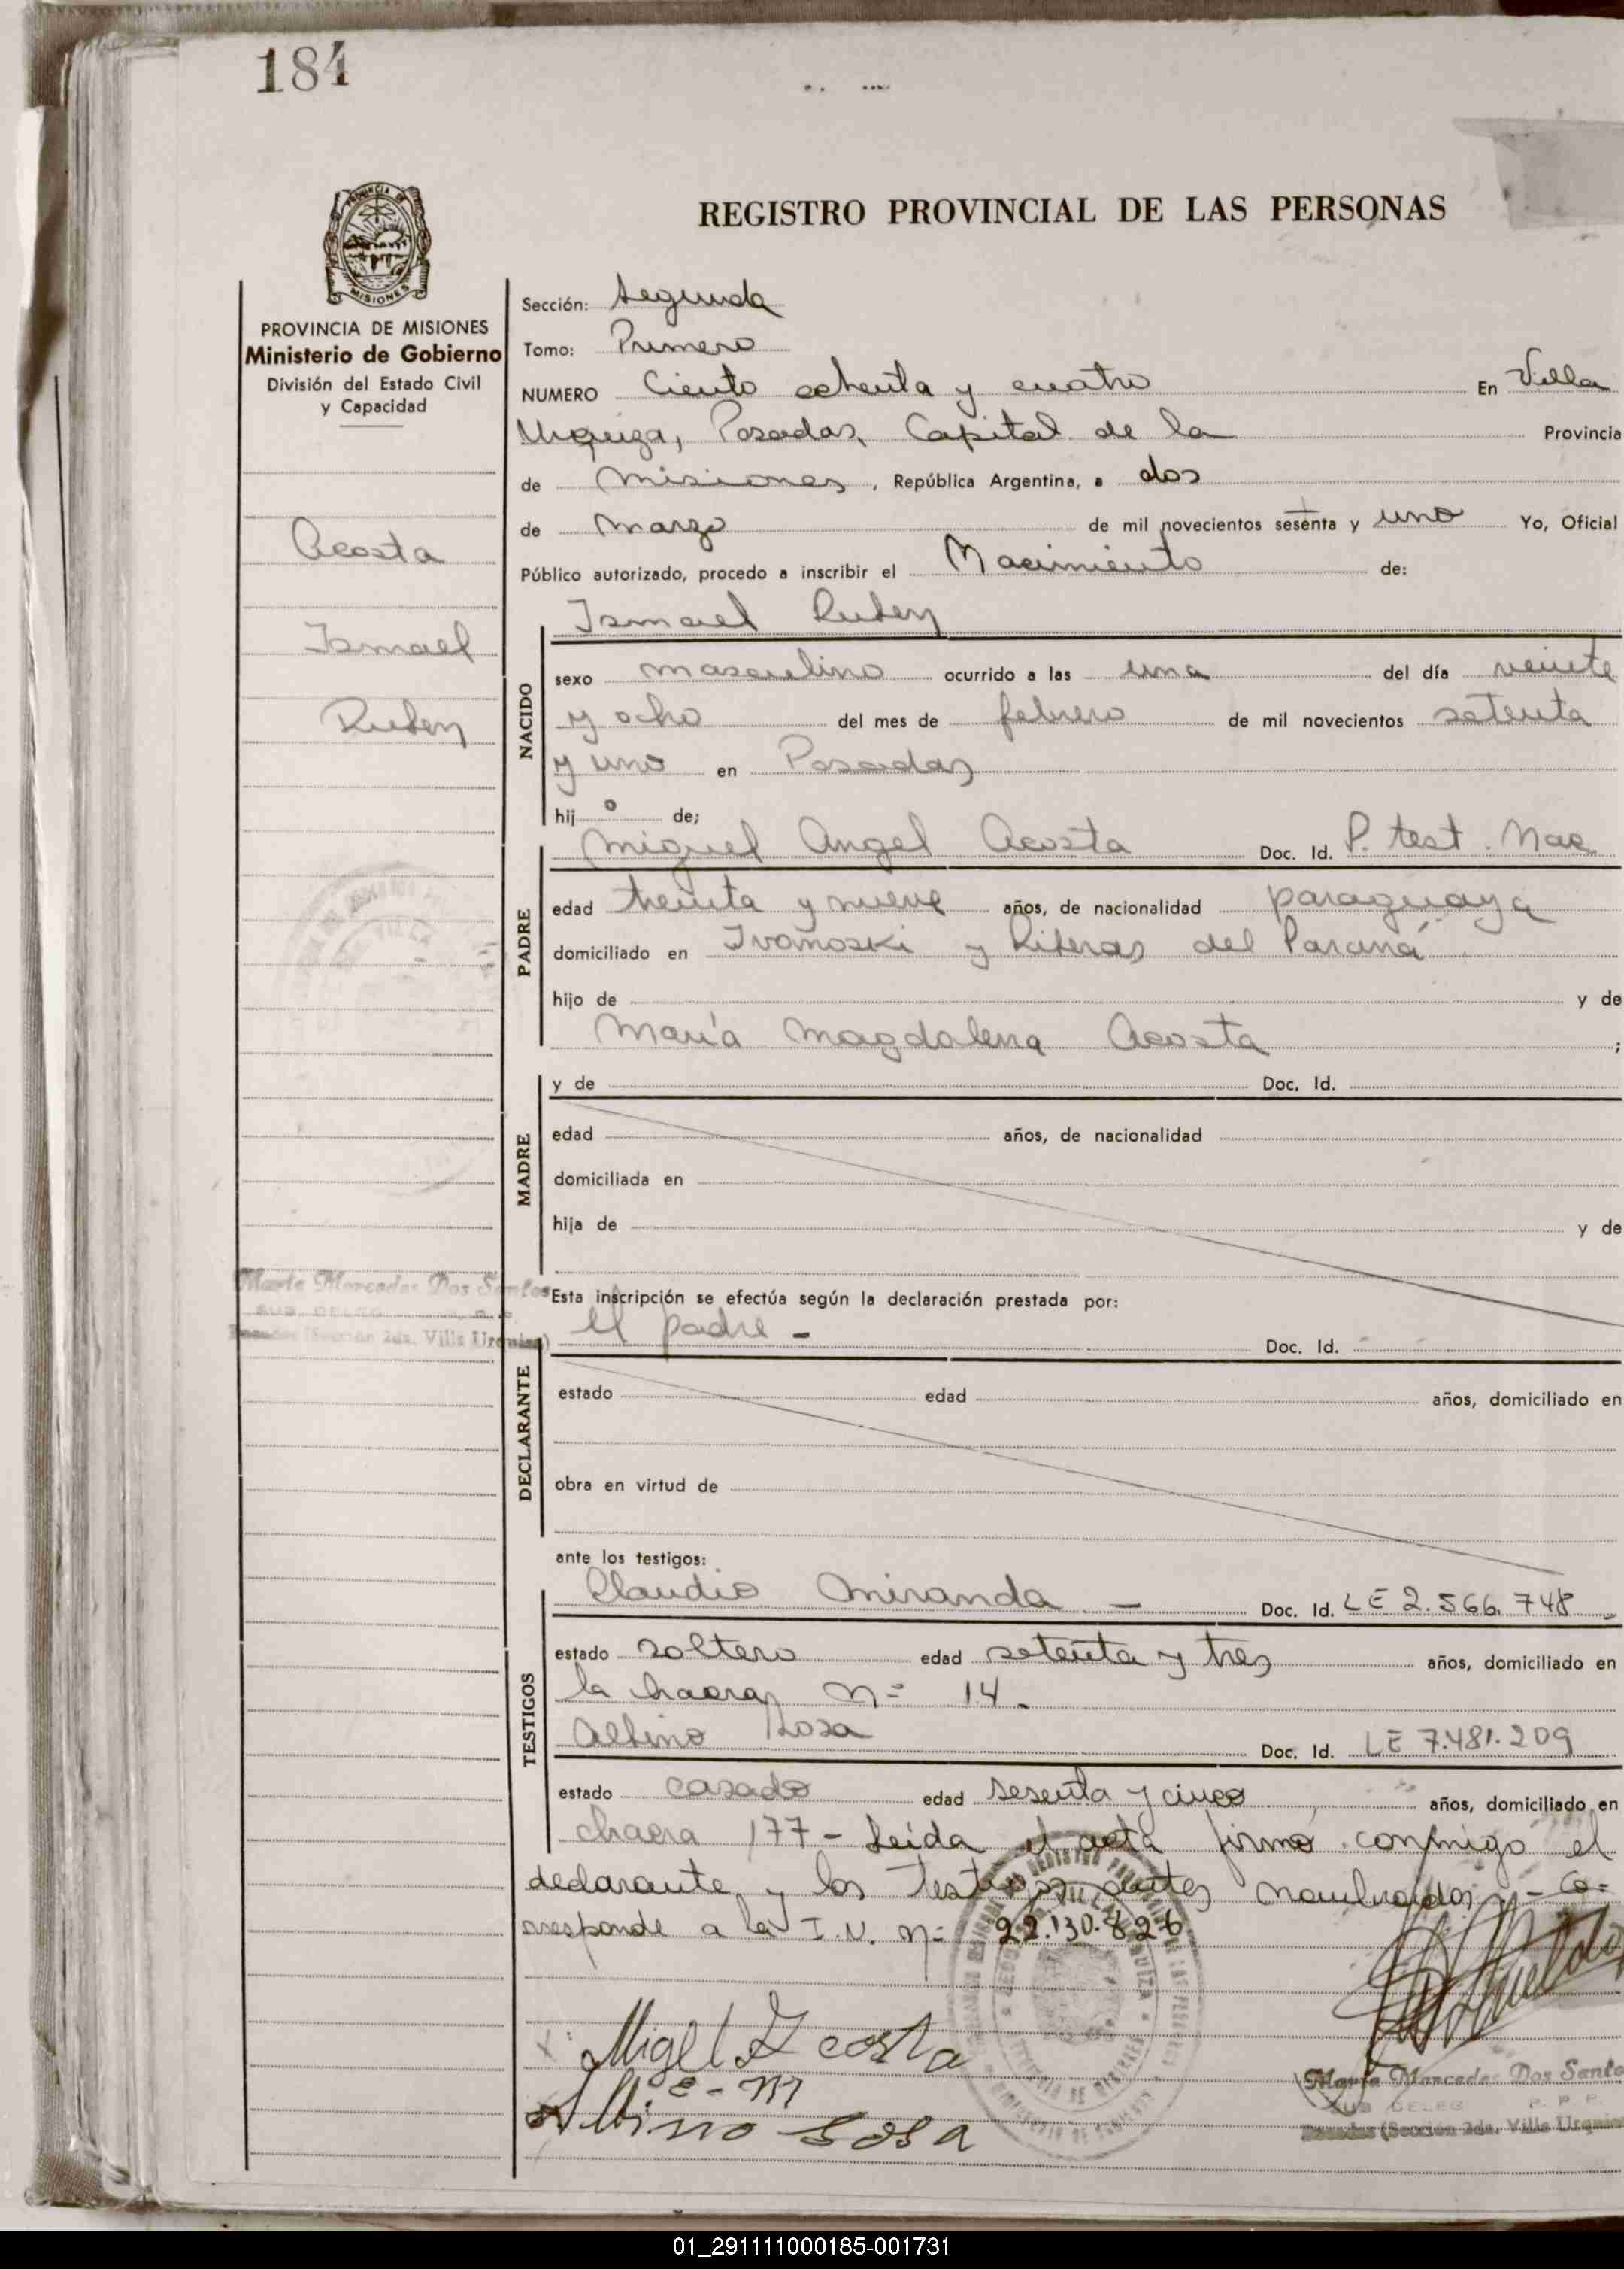 184
REGISTRO PROVINCIAL DE LAS PERSONAS
MISIONES
PROVINCIA DE MISIONES
Ministerio de Gobierno
División del Estado Civil
y Capacidad
Acosta
Ismael
Ruben
Sección: Segunda
Tomo: Primero
NUMERO Ciento ochenta y cuatro En Villa
Urquiza, Posadas, Capital de la Provincia
de Misiones, República Argentina, a dos
de Marzo de mil novecientos sesenta y uno Yo, Oficial
Público autorizado, procedo a inscribir el Nacimiento de:
Ismael Ruben
NACIDO
sexo masculino ocurrido a las una del día veinte
y ocho del mes de febrero de mil novecientos setenta
y uno en Posadas
hij o de;
PADRE
Miguel Angel Acosta Doc. Id. P. test. Nac
edad treinta y nueve años, de nacionalidad paraguaya
domiciliado en Ivanoski y Riberas del Paraná
hijo de y de
María Magdalena Acosta ;
MADRE
y de Doc. Id.
edad años, de nacionalidad
domiciliada en
hija de y de
Maria Mercedes Dos Santos
SUB DELEG
Posadas (Sección 2da. Villa Urquiza)
Esta inscripción se efectúa según la declaración prestada por:
el padre - Doc. Id.
DECLARANTE
estado edad años, domiciliado en
obra en virtud de
ante los testigos:
TESTIGOS
Claudio Miranda - Doc. Id. LE 2.566.748 -
estado soltero edad setenta y tres años, domiciliado en
la chacra n= 14.
Albino Sosa Doc. Id. LE 7.481.209
estado casado edad sesenta y cinco, años, domiciliado en
chacra 177 - Leída el acta firmó conmigo el
declarante y los testigos antes nombrados - Co=
rresponde a la I.N. n= 22.130.826
Migel A costa
e - m
Albino sosa
Maria Mercedes Dos Santo
SUB DELEG R P P
Posadas (Sección 2da. Villa Urquiza
01_291111000185-001731